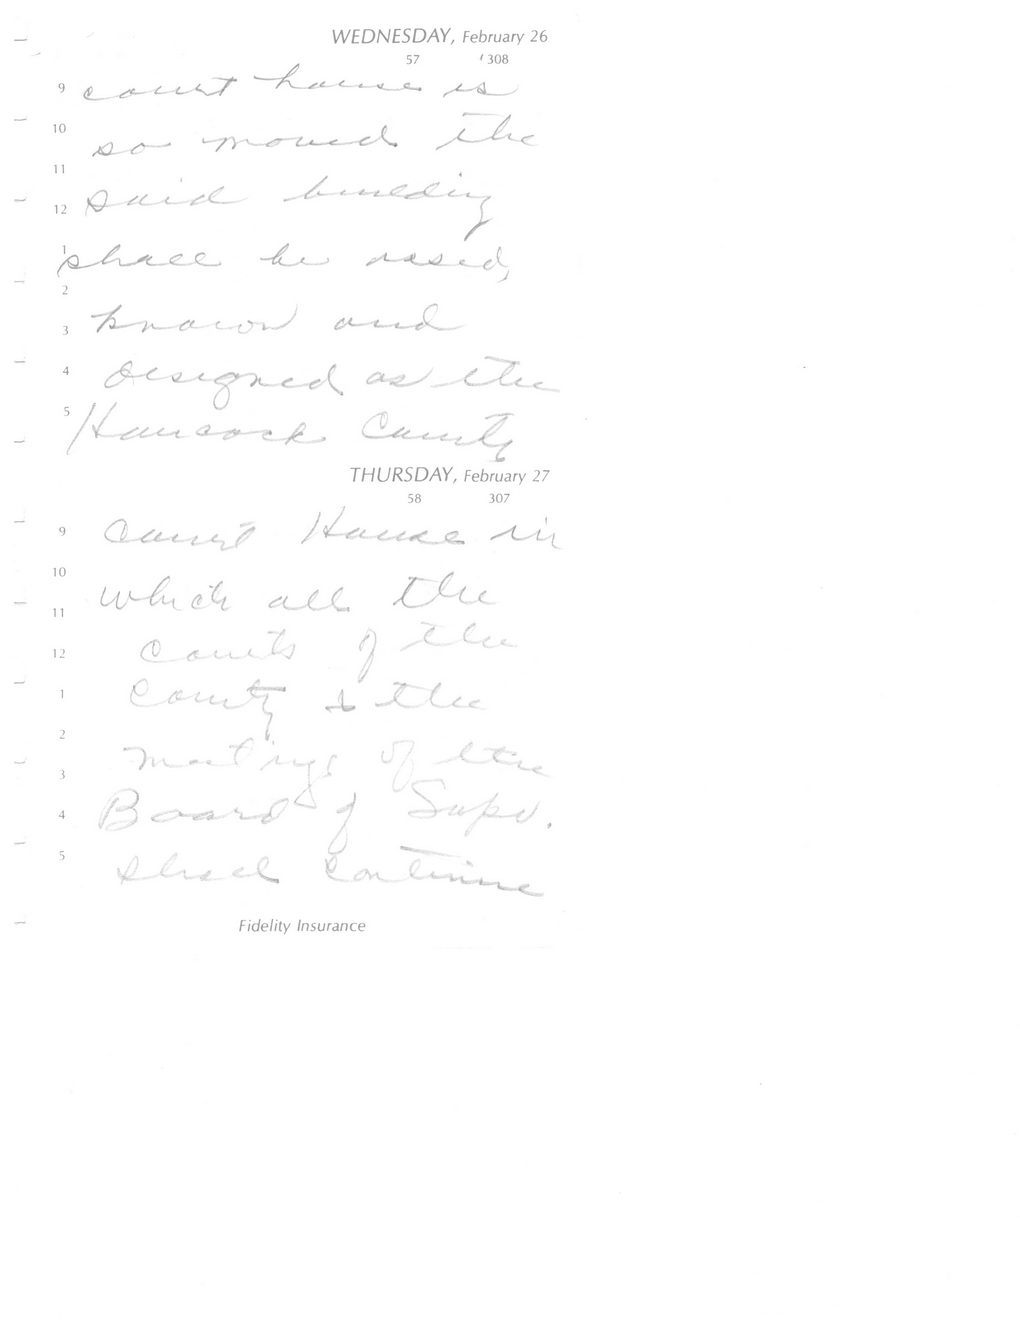 WEDNESDAY, February 26
57 308
9 court house is
10 so moved the
11
12 said building
1 shall be used,
2
3 known and
4 designed as the
5 Hancock County
THURSDAY, February 27
58 307
9 Court House in
10
11 which all the
12 Courts of the
1 County & the
2
3 meetings of the
4 Board of Supv.
5 shall continue
Fidelity Insurance